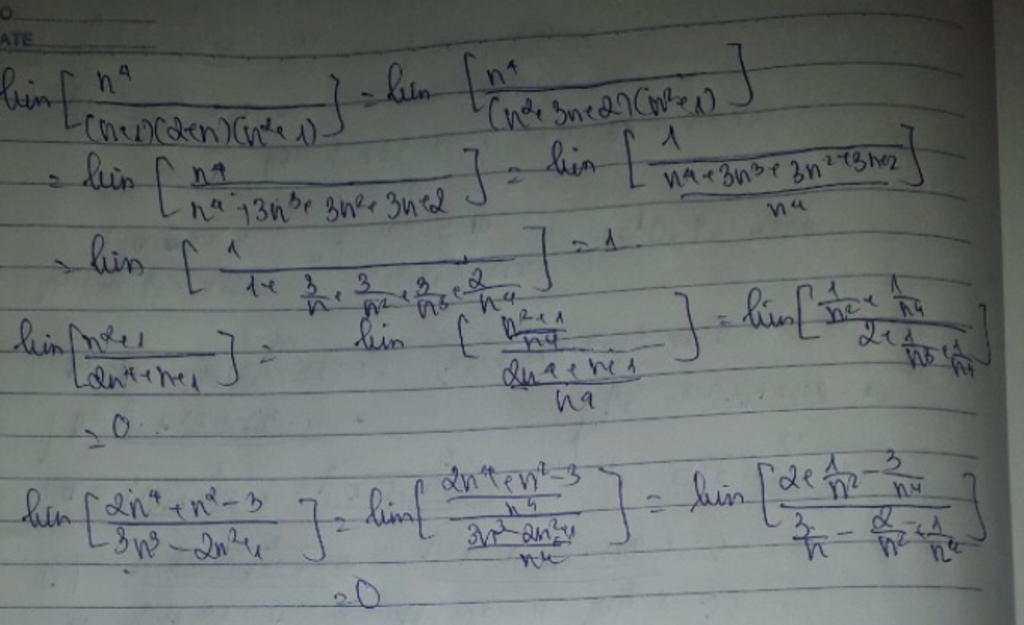 O
ATE
lim [n⁴ / (n+1)(2+n)(n²+1)] = lim [n⁴ / (n²+3n+2)(n²+1)]
= lim [n⁴ / n⁴+3n³+3n²+3n+2] = lim [1 / ((n⁴+3n³+3n²+3n+2) / n⁴)]
= lim [1 / 1+3/n+3/n²+3/n³+2/n⁴] = 1
lim [n²+1 / 2n⁴+n+1] = lim [((n²+1) / n⁴) / ((2n⁴+n+1) / n⁴)] = lim [1/n²+1/n⁴ / 2+1/n³+1/n⁴]
= 0
lim [2n⁴+n²-3 / 3n³-2n²+1] = lim [((2n⁴+n²-3) / n⁴) / ((3n³-2n²+1) / n⁴)] = lim [2+1/n²-3/n⁴ / 3/n-2/n²+1/n⁴]
= 0